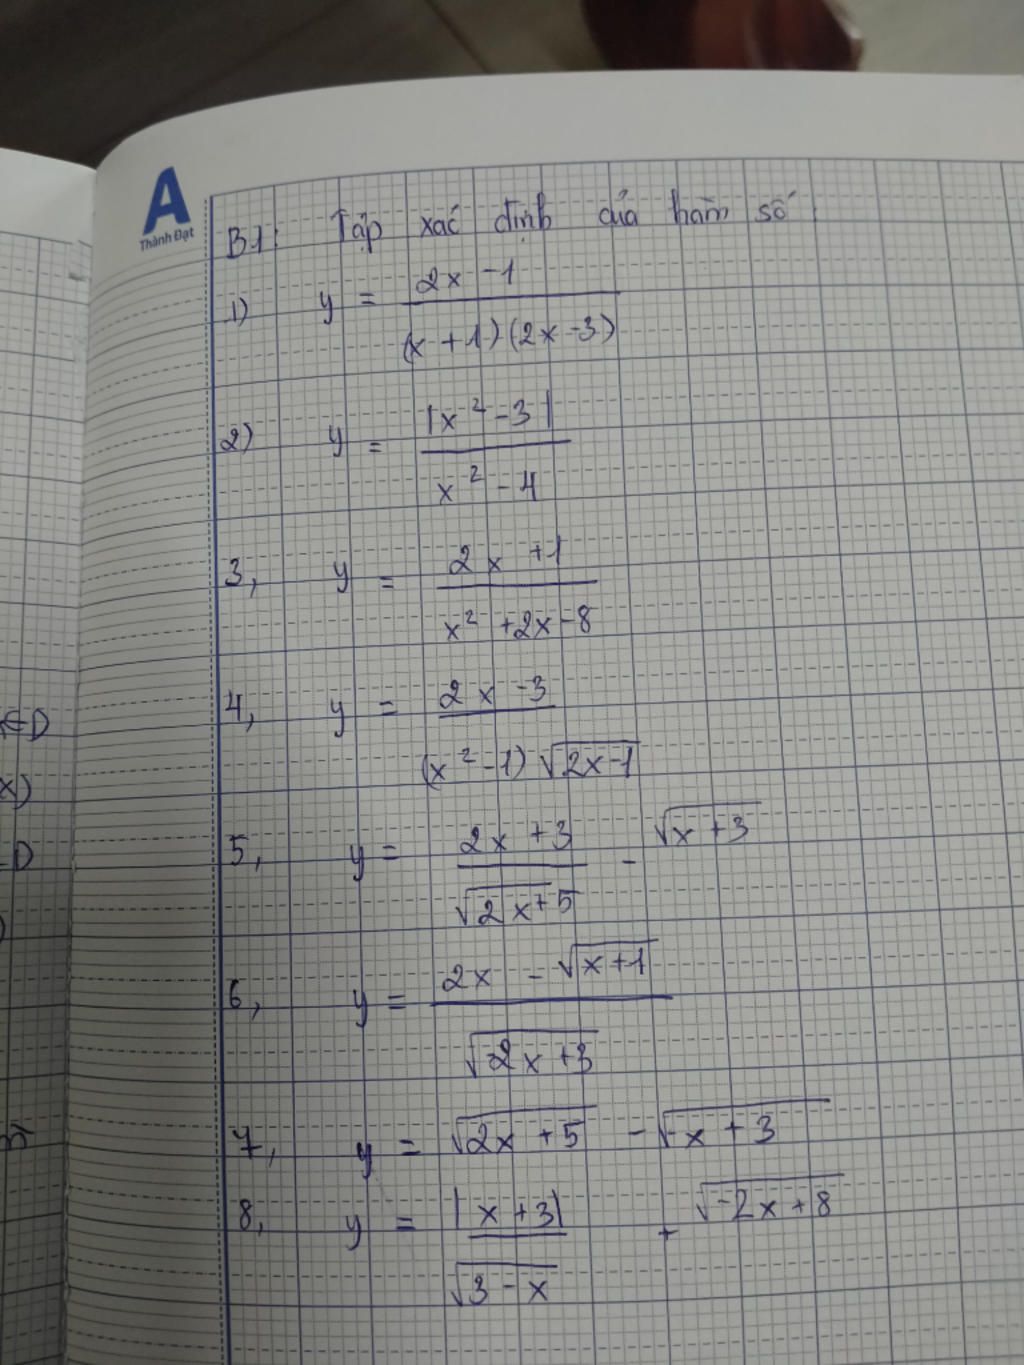 A
Thành Đạt
B1: Tập xác định của hàm số
1) y = (2x - 1) / ((x + 1)(2x - 3))
2) y = |x² - 3| / (x² - 4)
3, y = (2x + 1) / (x² + 2x - 8)
4, y = (2x - 3) / ((x² - 1)√(2x - 1))
5, y = (2x + 3) / √(2x + 5) - √(x + 3)
6, y = (2x - √(x + 1)) / √(-2x + 3)
7, y = √(2x + 5) - √(-x + 3)
8, y = |x + 3| / √(3 - x) + √(-2x + 8)
∈D
x)
D
)